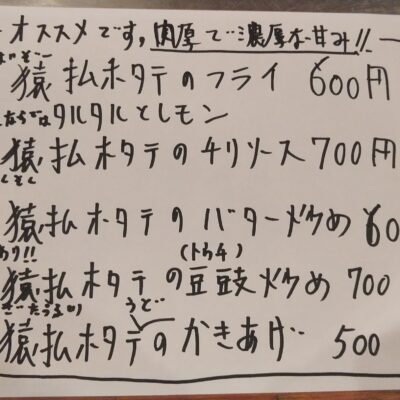 オススメです,肉厚で濃厚な甘み!!
猿払ホタテのフライ 600円
タルタルとレモン
猿払ホタテのチリソース 700円
猿払ホタテのバター炒め 60
あり!!
(トウチ)
猿払ホタテの豆豉炒め 700
うど
猿払ホタテのかきあげ 500